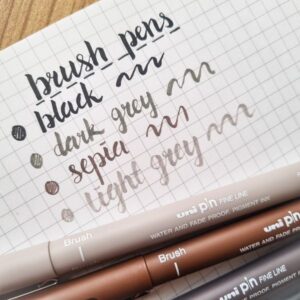 brush pens
black
dark grey
sepia
light grey
uni pin FINE LINE
WATER AND FADE PROOF, PIGMENT INK
Brush
uni pin FINE LINE
WATER AND FADE PROOF, PIGMENT INK
Brush
uni pin FINE LINE